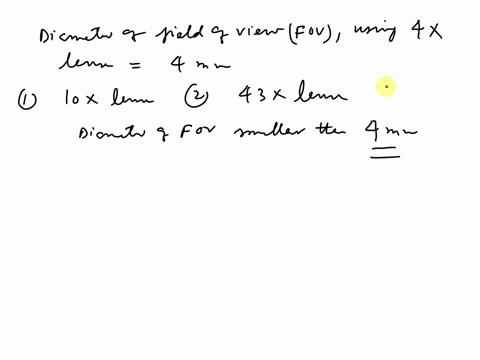 Diameter of field of view (FOV), using 4X
lens = 4 mm
① 10x lens ② 43x lens
Diameter of FOV smaller than 4 mm